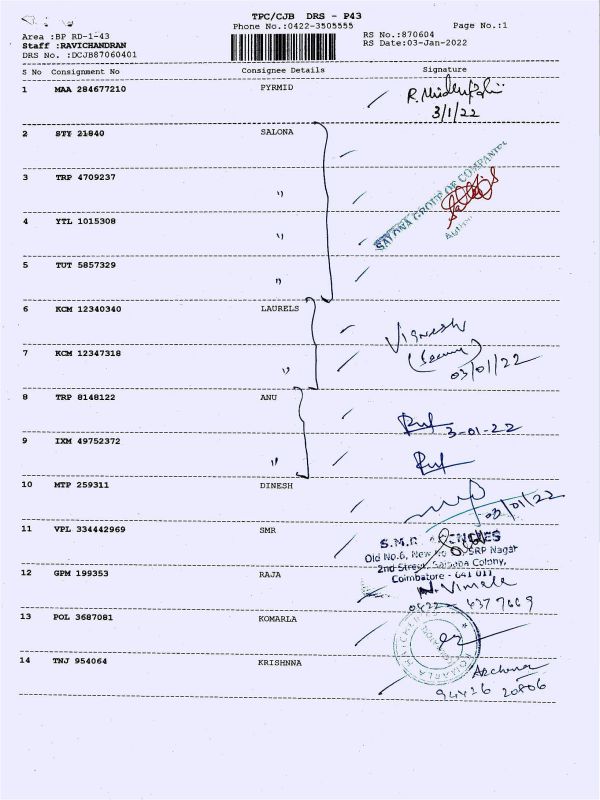 TPC/CJB DRS - P43
Phone No.:0422-3505555 Page No.:1
Area :BP RD-1-43 RS No.:870604
Staff :RAVICHANDRAN RS Date:03-Jan-2022
DRS No. :DCJB87060401
S No Consignment No Consignee Details Signature
1 MAA 284677210 PYRMID
3/1/22
2 STY 21840 SALONA
3 TRP 4709237 "
SALONA GROUP OF COMPANIES
4 YTL 1015308 "
5 TUT 5857329 "
6 KCM 12340340 LAURELS
Vignesh
7 KCM 12347318 "
03/01/22
8 TRP 8148122 ANU
3-01-22
9 IXM 49752372 "
10 MTP 259311 DINESH
03/01/22
11 VPL 334442969 SMR
S.M.R AGENCIES
Old No.6, New No SRP Nagar
2nd Street, Saibaba Colony,
Coimbatore - 641 011
12 GPM 199353 RAJA
N. Vimala
0422 - 4377669
13 POL 3687081 KOMARLA
KOMARLA HATCHERIES
14 TNJ 954064 KRISHNNA
Archana
94426 20806